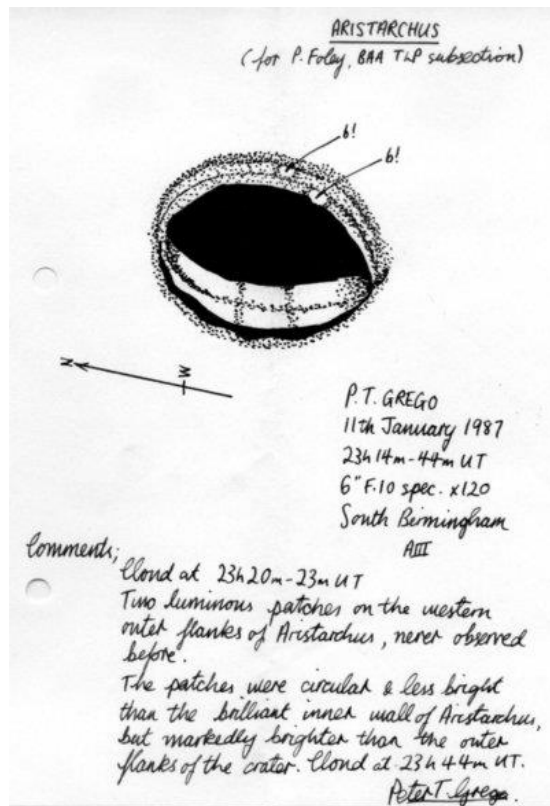 ARISTARCHUS
(for P. Foley, BAA TLP subsection)
6!
6!
N
W
P.T. GREGO
11th January 1987
23h14m-44m UT
6" F.10 spec. x120
South Birmingham
AIII
Comments;
Cloud at 23h20m-23m UT
Two luminous patches on the western
outer flanks of Aristarchus, never observed
before.
The patches were circular & less bright
than the brilliant inner wall of Aristarchus,
but markedly brighter than the outer
flanks of the crater. Cloud at 23h44m UT.
Peter T. Grego.